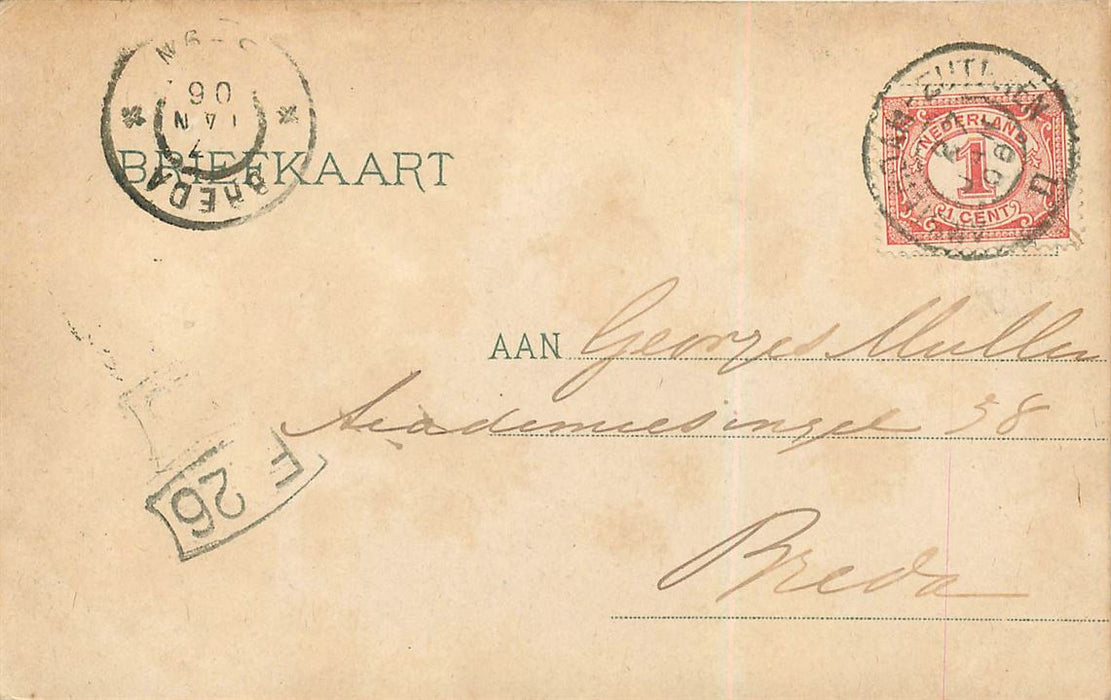 06
JAN
7
BREDA
BRIEFKAART
NEDERLAND
1
1 CENT
AAN Georges Muller
Academiesingel 38
Breda
F 26